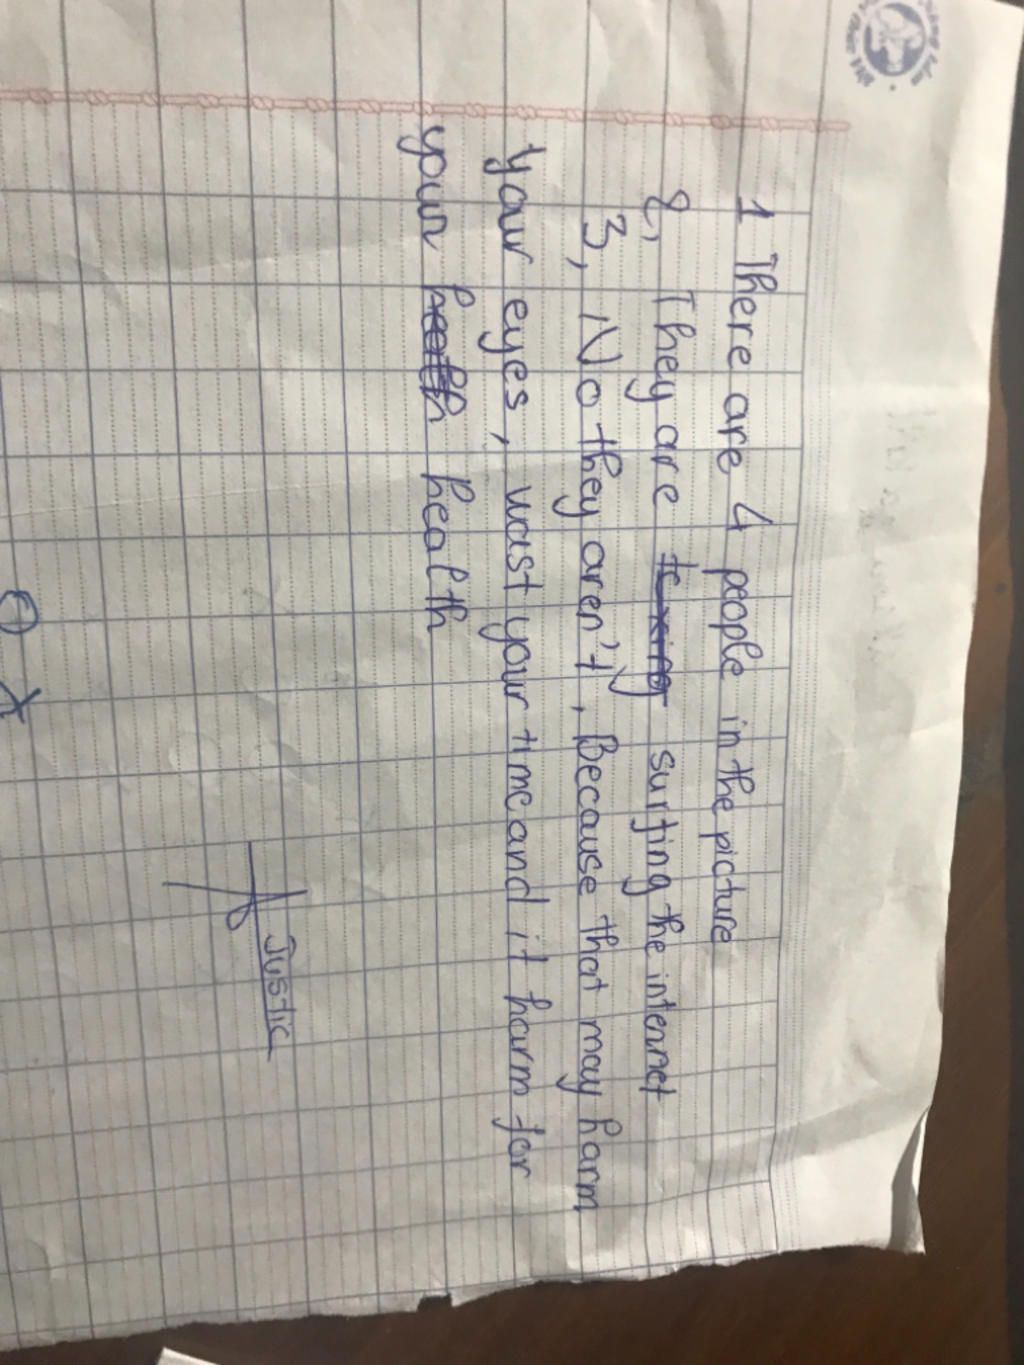 1 There are 4 people in the picture
2, They are surfing the internet
3, No they aren't, Because that may harm
your eyes, wast your time and it harm for
your health
Justic